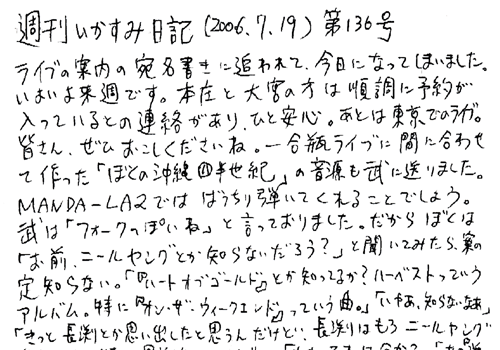 週刊いかすみ日記(2006.7.19)第136号
ライブの案内の宛名書きに追われて、今日になってしまいました。
いよいよ来週です。本荘と大宮の方は順調に予約が
入っているとの連絡があり、ひと安心。あとは東京でのライブ。
皆さん、ぜひおこしくださいね。一合瓶ライブに間に合わせ
て作った「ぼくの沖縄四半世紀」の音源も武に送りました。
MANDA-LA2ではばっちり弾いてくれることでしょう。
武は「フォークっぽいね」と言っておりました。だからぼくは
「お前、ニールヤングとか知らないだろう?」と聞いてみたら、案の
定知らない。「『ハートオブゴールド』とか知ってるか?ハーベストっていう
アルバム。特に『オン・ザ・ウィークエンド』っていう曲。」「いやあ、知らないなあ」
「きっと長渕とか思い出したと思うんだけどい、長渕はもろニールヤング